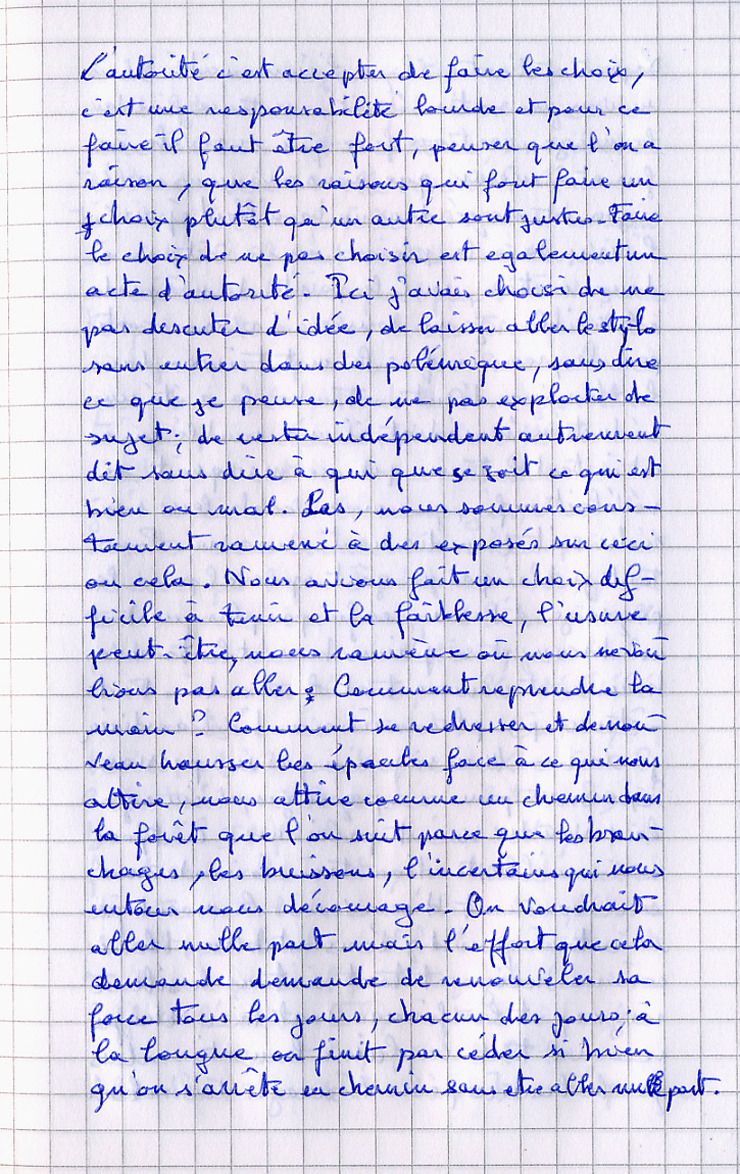 L'autorité c'est accepter de faire les choix,
c'est une responsabilité lourde et pour ce
faire il faut être fort, penser que l'on a
raison, que les raisons qui font faire un
choix plutôt qu'un autre sont justes. Faire
le choix de ne pas choisir est egalement un
acte d'autorité. Ici j'avais choisi de ne
pas discuter d'idée, de laisser aller le stylo
sans entrer dans des polémique, sans dire
ce que je pense, de ne pas exploiter de
sujet; de rester indépendant autrement
dit sans dire à qui que se soit ce qui est
bien ou mal. Las, nous sommes cons-
tament ramené à des exposés sur ceci
ou cela. Nous avions fait un choix dif-
ficile à tenir et la faiblesse, l'usure
peut-être, nous ramène où nous ne vou
lions pas aller. Comment reprendre la
main ? Comment se redresser et de nou-
veau hausser les épaules face à ce qui nous
attire, nous attire comme un chemin dans
la forêt que l'on suit parce que les bran-
chages, les buissons, l'incertains qui nous
entour nous décourage. On voudrait
aller nulle part mais l'effort que cela
demande demande de renouveler sa
force tous les jours, chacun des jours; à
la longue on finit par céder si bien
qu'on s'arrête en chemin sans etre aller nulle part.